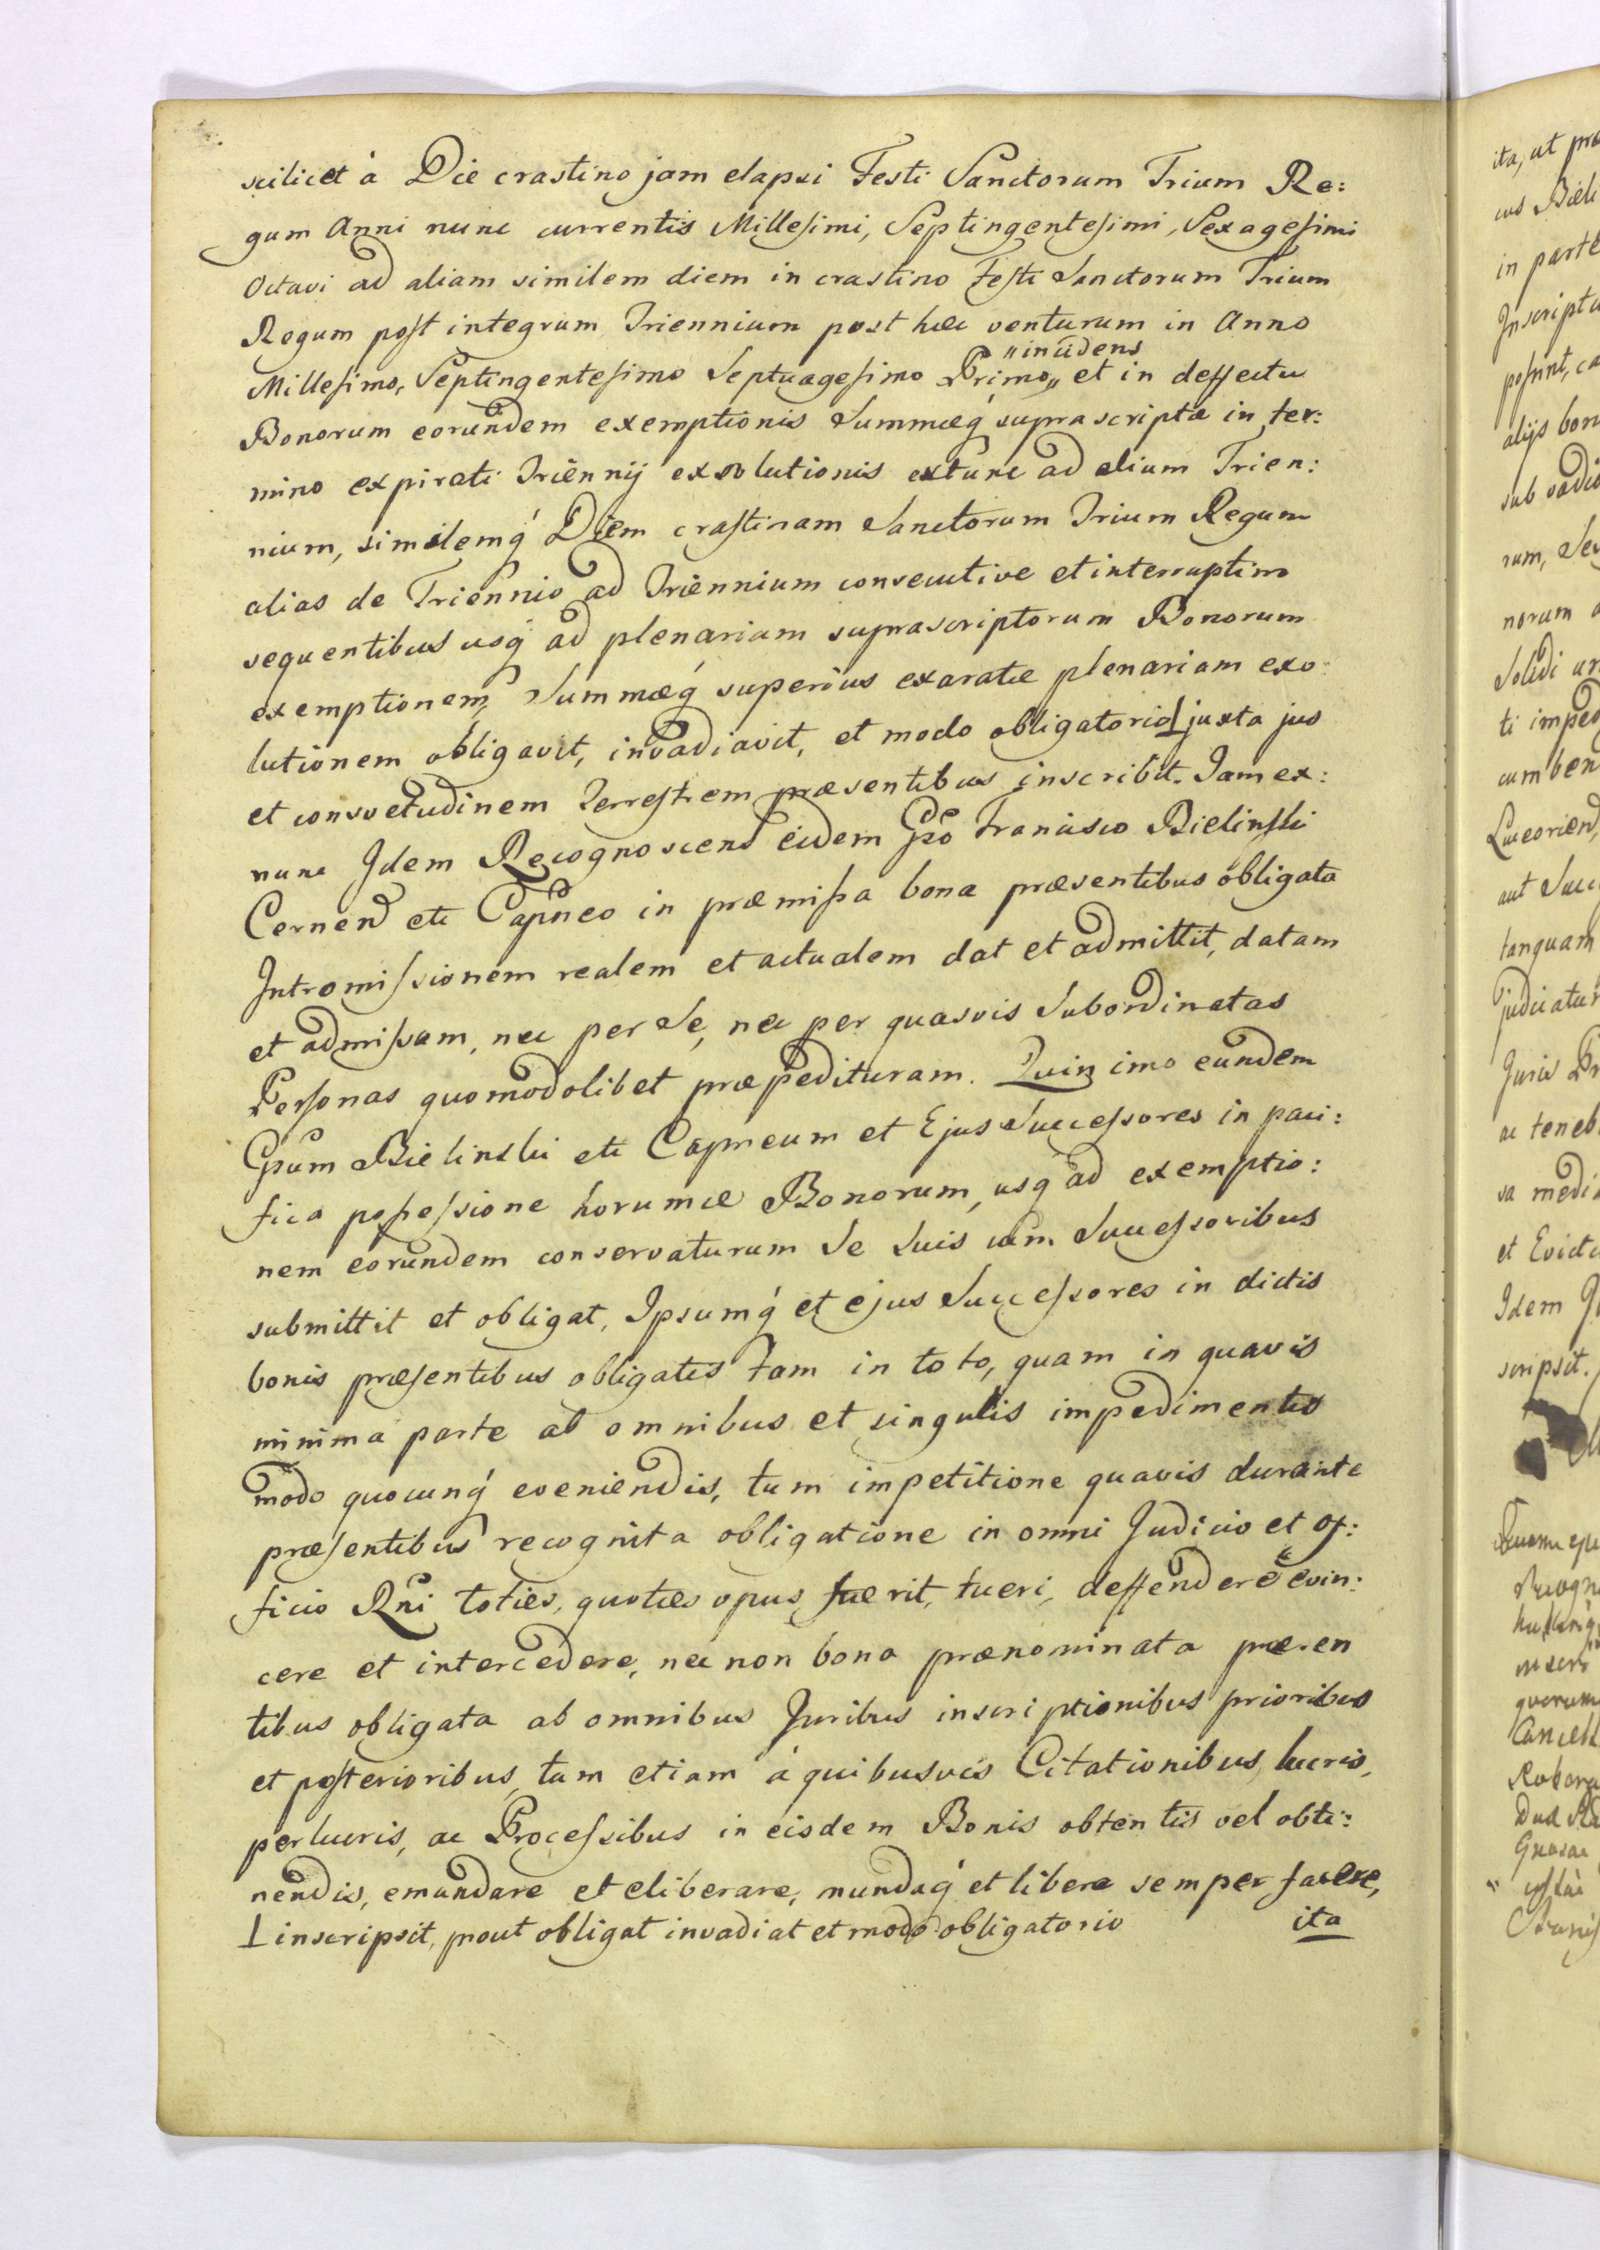 scilicet à Die crastino jam elapsi Festi Sanctorum Trium Re:
gum Anni nunc currentis Millesimi, Septingentesimi, Sexagesimi
Octavi ad aliam similem diem in crastino Festi Sanctorum Trium
Regum post integrum Triennium post hæc venturum in Anno
"incidens
Millesimo, Septingentesimo Septuagesimo Primo,, et in deffectu
Bonorum eorundem exemptionis Summæq́ suprascriptæ in ter:
mino expirati Triennij exsolutionis extunc ad alium Trien:
nium, similemq́ Diem crastinam Sanctorum Trium Regum
alias de Triennio ad Triennium consecutive et interruptim
sequentibus usq́ ad plenariam suprascriptorum Bonorum
exemptionem, Summæq́ superius exaratæ plenariam exo
lutionem obligavit, invadiavit, et modo obligatorio⊥juxta jus
et consvetudinem Terrestrem præsentibus inscribit. Jam ex:
nunc Idem Recognoscens eidem Gso Francisco Bielinski
Cernend etc Capneo in præmissa bona præsentibus obligata
Intromissionem realem et actualem dat et admittit, datam
et admissam, nec per Se, nec per quasvis Subordinatas
Personas quomodolibet præpedituram. Quin imo eundem
Gsum Bielinski etc Capneum et Ejus Successores in paci:
fica possessione horumce Bonorum, usq́ ad exemptio:
nem eorundem conservaturum Se Suis cum Successoribus
submittit et obligat, Ipsumq́ et ejus Successores in dictis
bonis præsentibus obligatis tam in toto, quam in quavis
minima parte ab omnibus et singulis impedimentis
modo quocunq́ eveniendis, tum impetitione quavis durante
præsentibus recognita obligatione in omni Judicio et of:
ficio Rni toties, quoties opus fuerit, tueri, deffendere evin:
cere et intercedere, nec non bona prænominata præsen
tibus obligata ab omnibus Juribus inscriptionibus prioribus
et posterioribus, tum etiam à quibusvis Citationibus, lucris,
perlucris, ac Processibus in eisdem Bonis obtentis vel obti:
nendis, emundare et eliberare, mundaq́ et libera semper facere,
⊥inscripsit, prout obligat invadiat et modo obligatorio
ita
ita, ut
in parte
sub vadio
norum
Solidi
cum
aut
tanquam
Juris
et
Idem